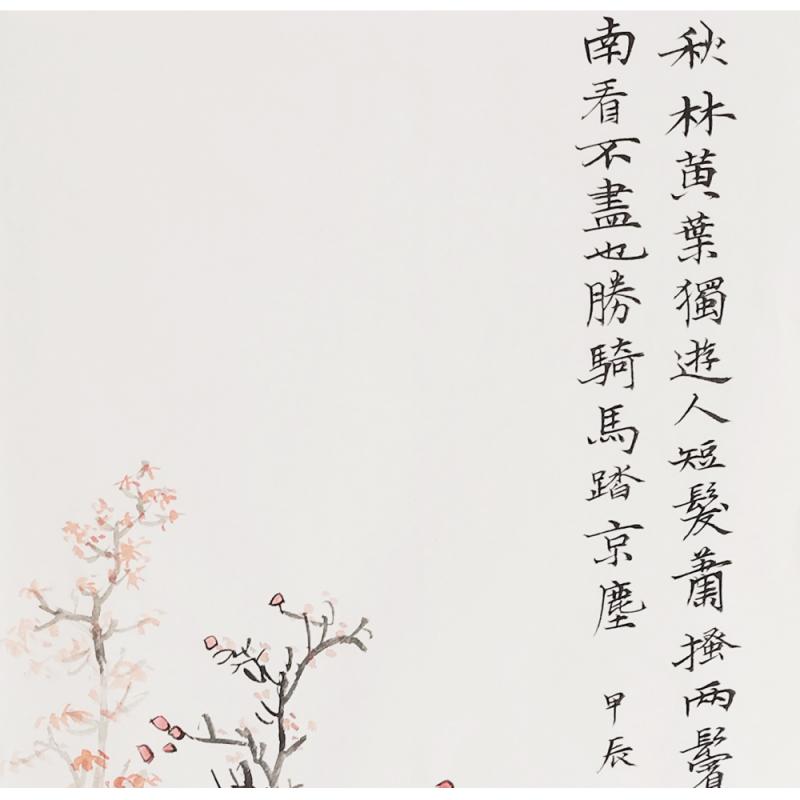 秋林黄葉獨遊人短髮蕭搔兩鬢
南看不盡也勝騎馬踏京塵
甲辰